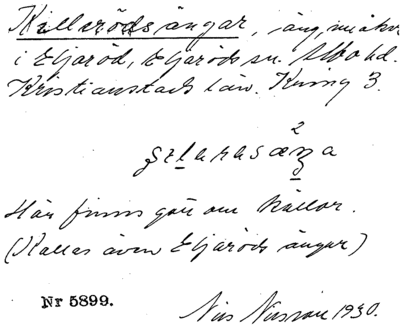 Killeröds ängar, äng, nu åker
i Eljaröd, Eljaröds sn. Albo hd.
Kristianstads län. Kung 3.
2
Här finns gott om källor.
(Kallas även Eljaröds ängar)
Nr 5899.
Nils 1930.